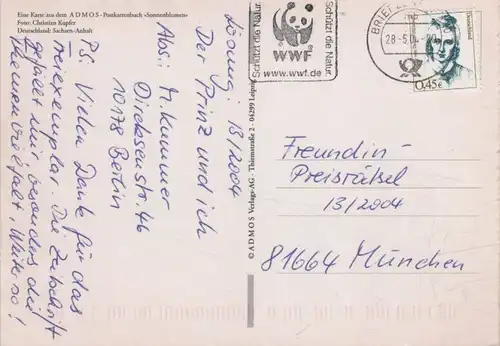 Eine Karte aus dem ADMOS - Postkartenbuch »Sonnenblumen«
Foto: Christian Kupfer
Deutschland: Sachsen-Anhalt
Lösung: 13/2004
Der Prinz und ich
Abs: M. Kummer
Dircksenstr. 46
10178 Berlin
PS: Vielen Dank für das
Freiexemplar. Die Zeitschrift
gefällt mir, besonders die
Themenvielfalt, Weiter so!
© ADMOS Verlags-AG · Thünenstraße 2 · 04299 Leipzig
Schützt die Natur.
WWF
Schützt die Natur.
www.wwf.de
28-5.04
Deutschland
0,45€
Freundin-
Preisrätsel
13/2004
81664 München